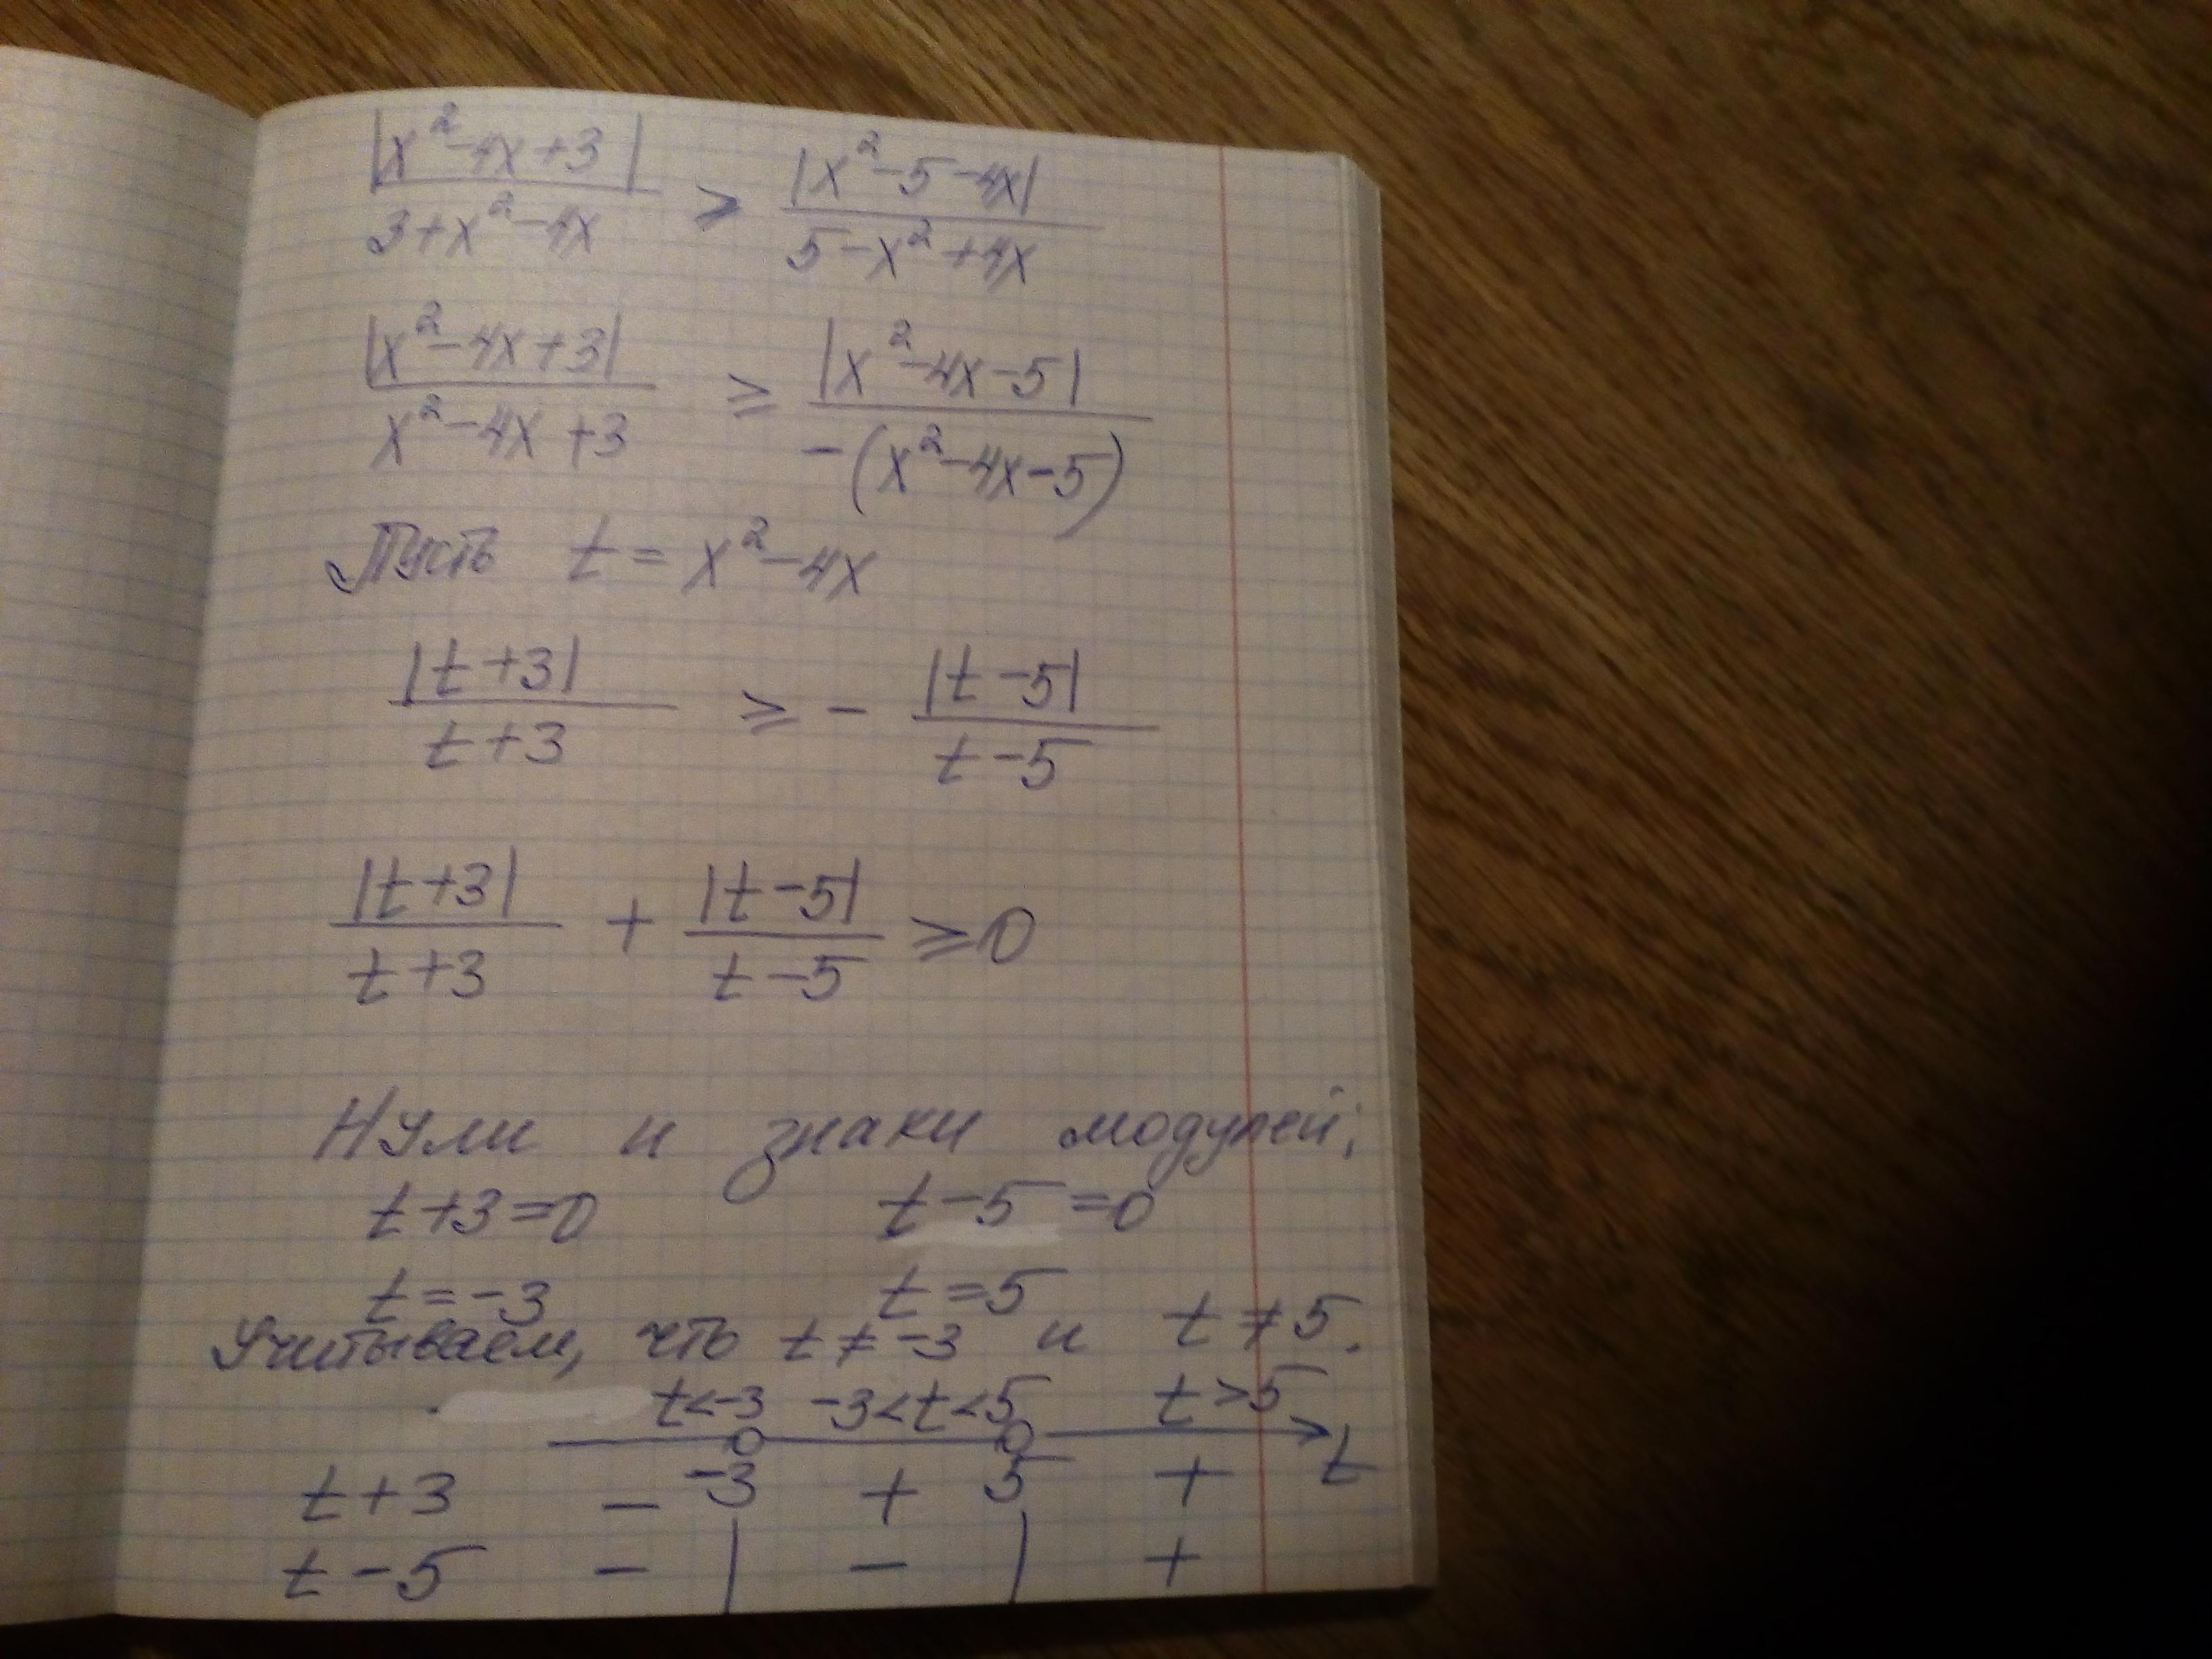 |x²-4x+3| / 3+x²-4x ≥ |x²-5-4x| / 5-x²+4x
|x²-4x+3| / x²-4x+3 ≥ |x²-4x-5| / -(x²-4x-5)
Пусть t = x²-4x
|t+3| / t+3 ≥ - |t-5| / t-5
|t+3| / t+3 + |t-5| / t-5 ≥ 0
Нули и знаки модулей;
t+3=0 t-5=0
t=-3 t=5
Учитываем, что t≠-3 и t≠5.
t<-3 -3<t<5 t>5
-3 5 t
t+3 - + +
t-5 - | - | +